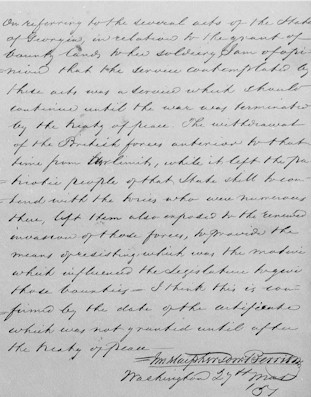 On referring to the several acts of the State
of Georgia, in relation to the grant of
bounty lands to her soldiery, I am of opi-
nion that the service contemplated by
those acts was a service which should
continue until the war was terminated
by the treaty of peace. The withdrawal
of the British forces anterior to that
time from her limits, while it left the pa-
triotic people of that State still to con-
tend with the tories who were numerous
there, left them also exposed to the renewed
invasion of those forces, to provide the
means of resisting which was the motive
which influenced the legislature to give
those bounties – I think this is con-
firmed by the date of the certificate
which was not granted until after
the treaty of peace
Washington 27th